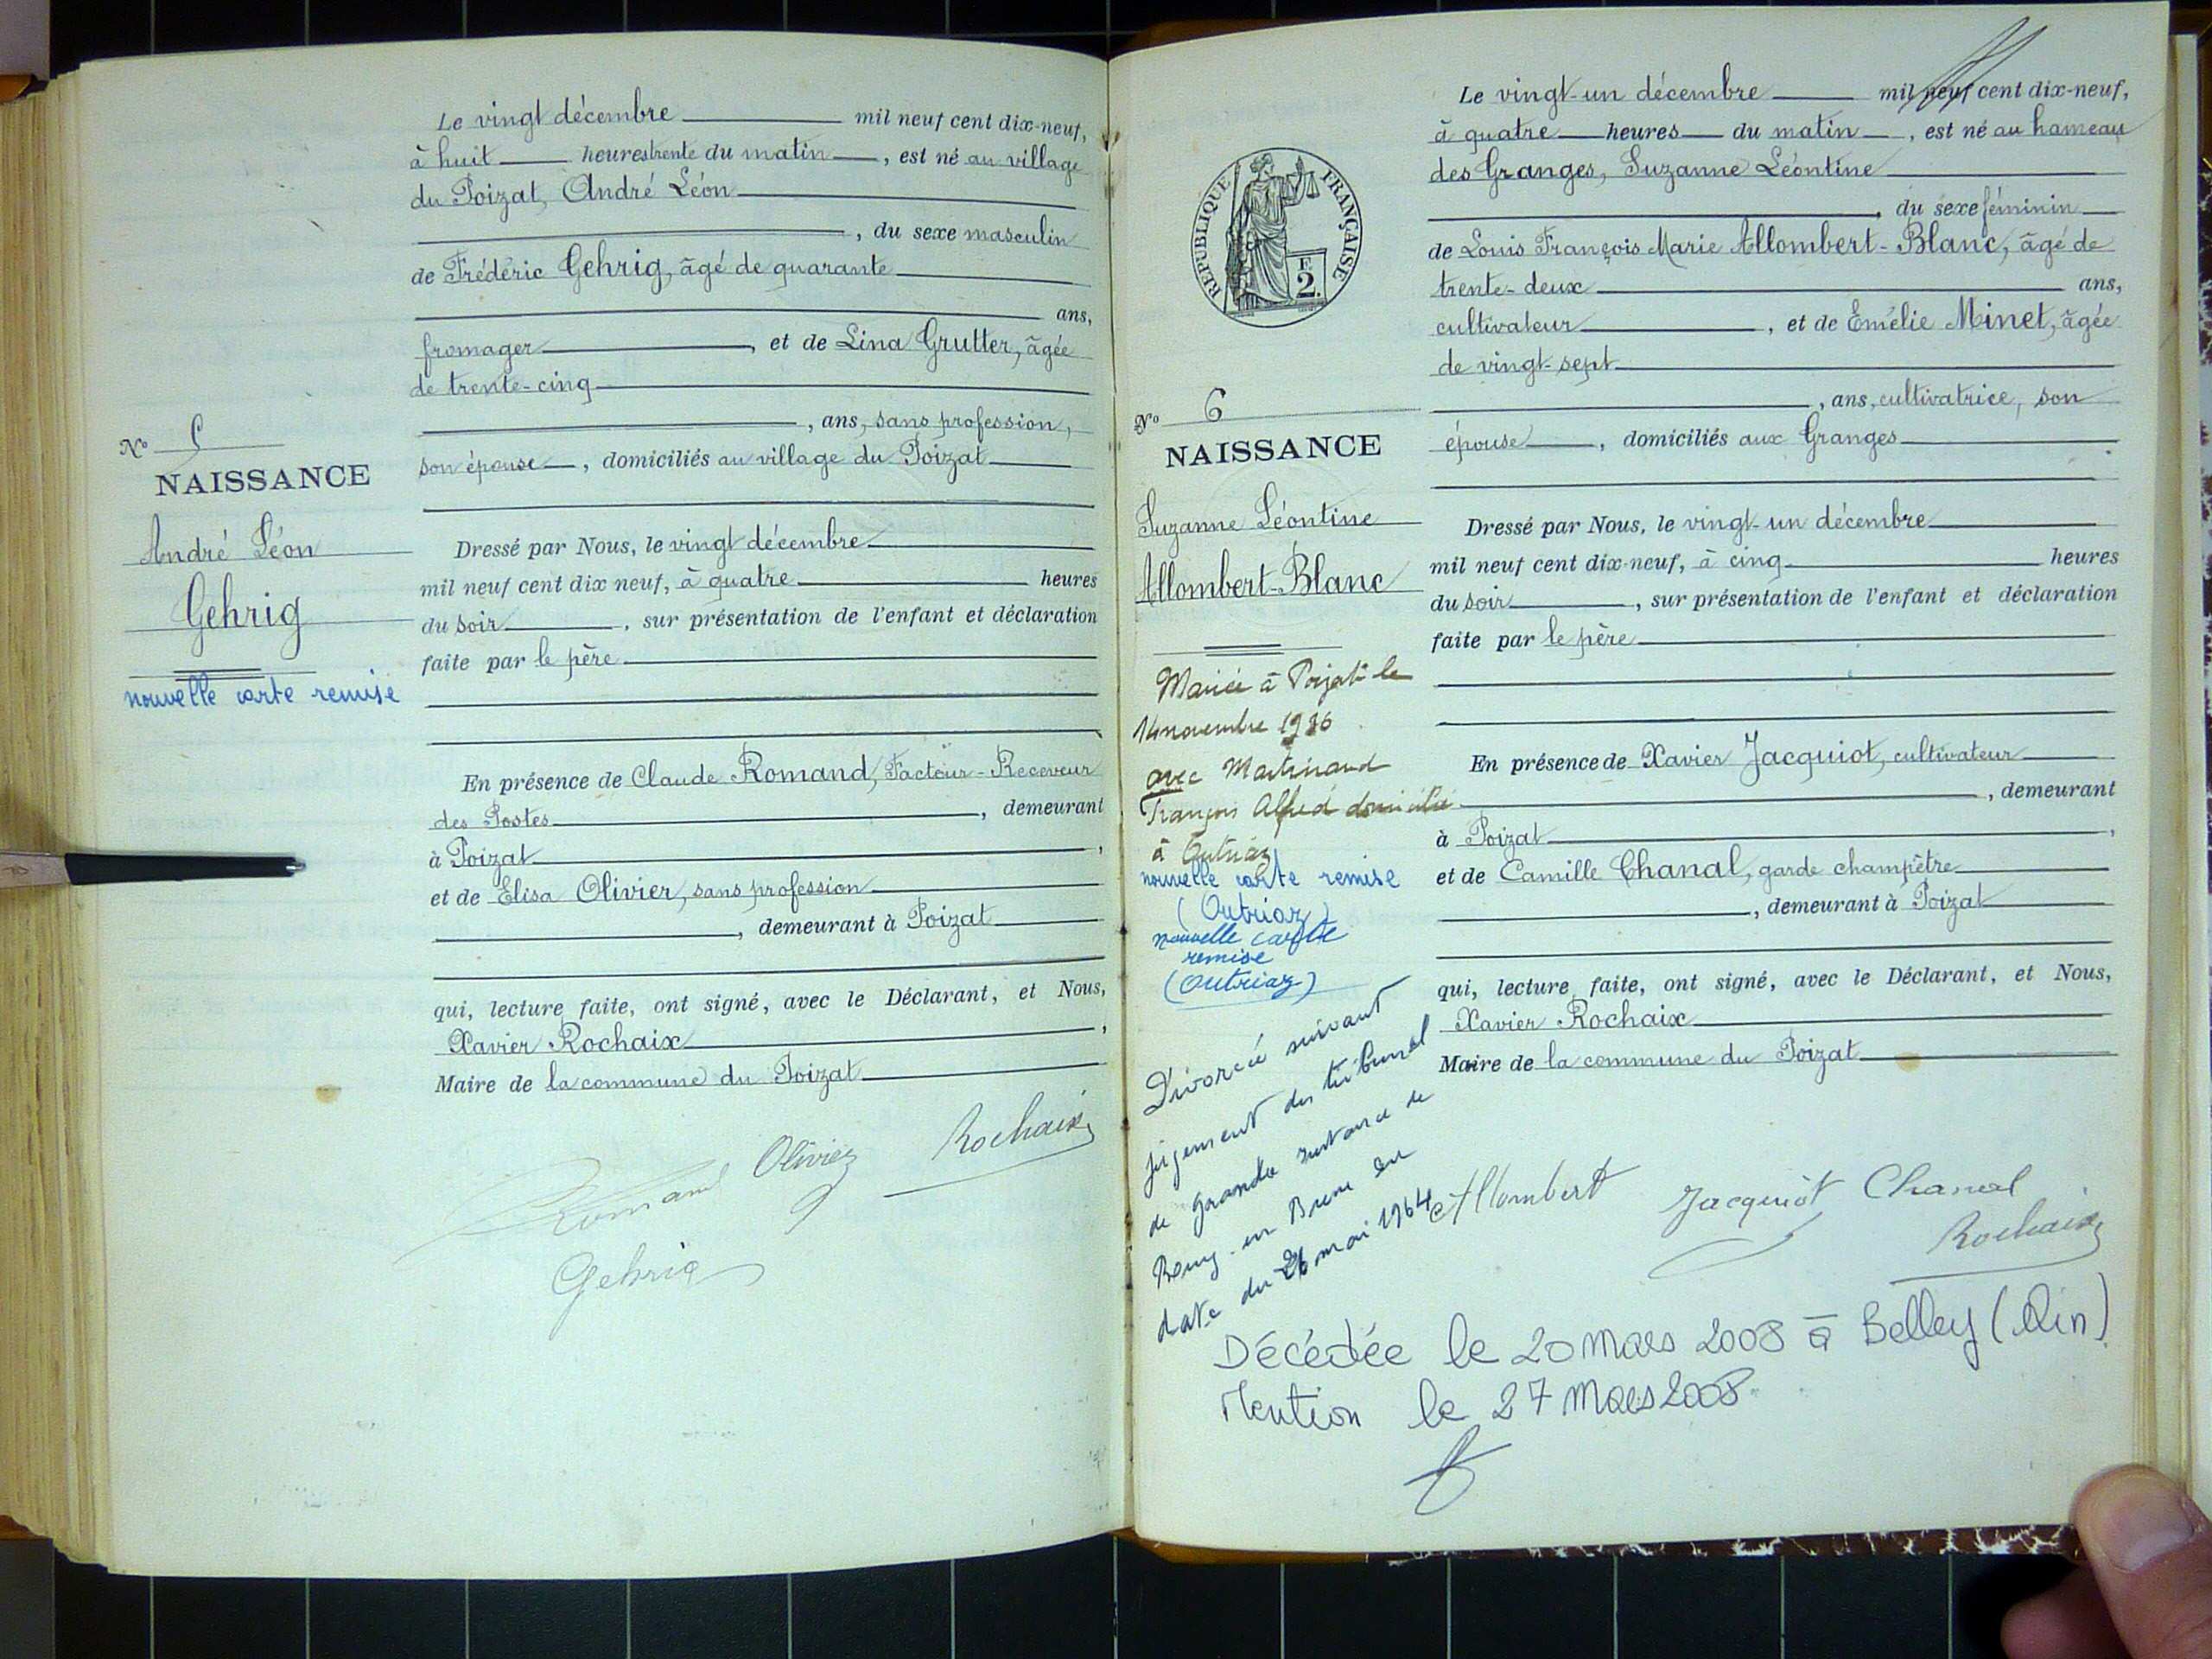 Le vingt décembre mil neuf cent dix-neuf,
à huit heures trente du matin, est né au village
du Poizat, André Léon
, du sexe masculin
de Frédéric Gehrig, âgé de quarante
ans,
fromager, et de Lina Grutter, âgée
de trente-cinq
, ans, sans profession,
son épouse, domiciliés au village du Poizat
Dressé par Nous, le vingt décembre
mil neuf cent dix neuf, à quatre heures
du soir, sur présentation de l'enfant et déclaration
faite par le père
En présence de Claude Romand, Facteur-Receveur
des Postes, demeurant
à Poizat,
et de Elisa Olivier, sans profession
, demeurant à Poizat
qui, lecture faite, ont signé, avec le Déclarant, et Nous,
Xavier Rochaix,
Maire de la commune du Poizat
Romand Olivier Rochaix
Gehrig
No 5
NAISSANCE
André Léon
Gehrig
nouvelle carte remise
Le vingt-un décembre mil neuf cent dix-neuf,
à quatre heures du matin, est né au hameau
des Granges, Suzanne Léontine
, du sexe féminin
de Louis François Marie Allombert-Blanc, âgé de
trente-deux ans,
cultivateur, et de Emélie Minet, âgée
de vingt-sept
, ans, cultivatrice, son
épouse, domiciliés aux Granges
Dressé par Nous, le vingt-un décembre
mil neuf cent dix-neuf, à cinq heures
du soir, sur présentation de l'enfant et déclaration
faite par le père
En présence de Xavier Jacquiot, cultivateur
, demeurant
à Poizat,
et de Camille Chanal, garde champêtre
, demeurant à Poizat
qui, lecture faite, ont signé, avec le Déclarant, et Nous,
Xavier Rochaix
Maire de la commune du Poizat
Allombert Jacquiot Chanal
Rochaix
REPUBLIQUE FRANÇAISE
F
2.
No 6
NAISSANCE
Suzanne Léontine
Allombert-Blanc
Mariée à Poizat le
14 novembre
avec Martinand
François Alfred domicilié
à Outriaz
nouvelle carte remise
(Outriaz)
nouvelle carte
remise
(Outriaz)
Divorcée suivant
jugement du tribunal
de grande instance de
Bourg-en-Bresse en
date du 26 mai 1964
Décédée le 20 mars 2008 à Belley (Ain)
Mention le 27 mars 2008